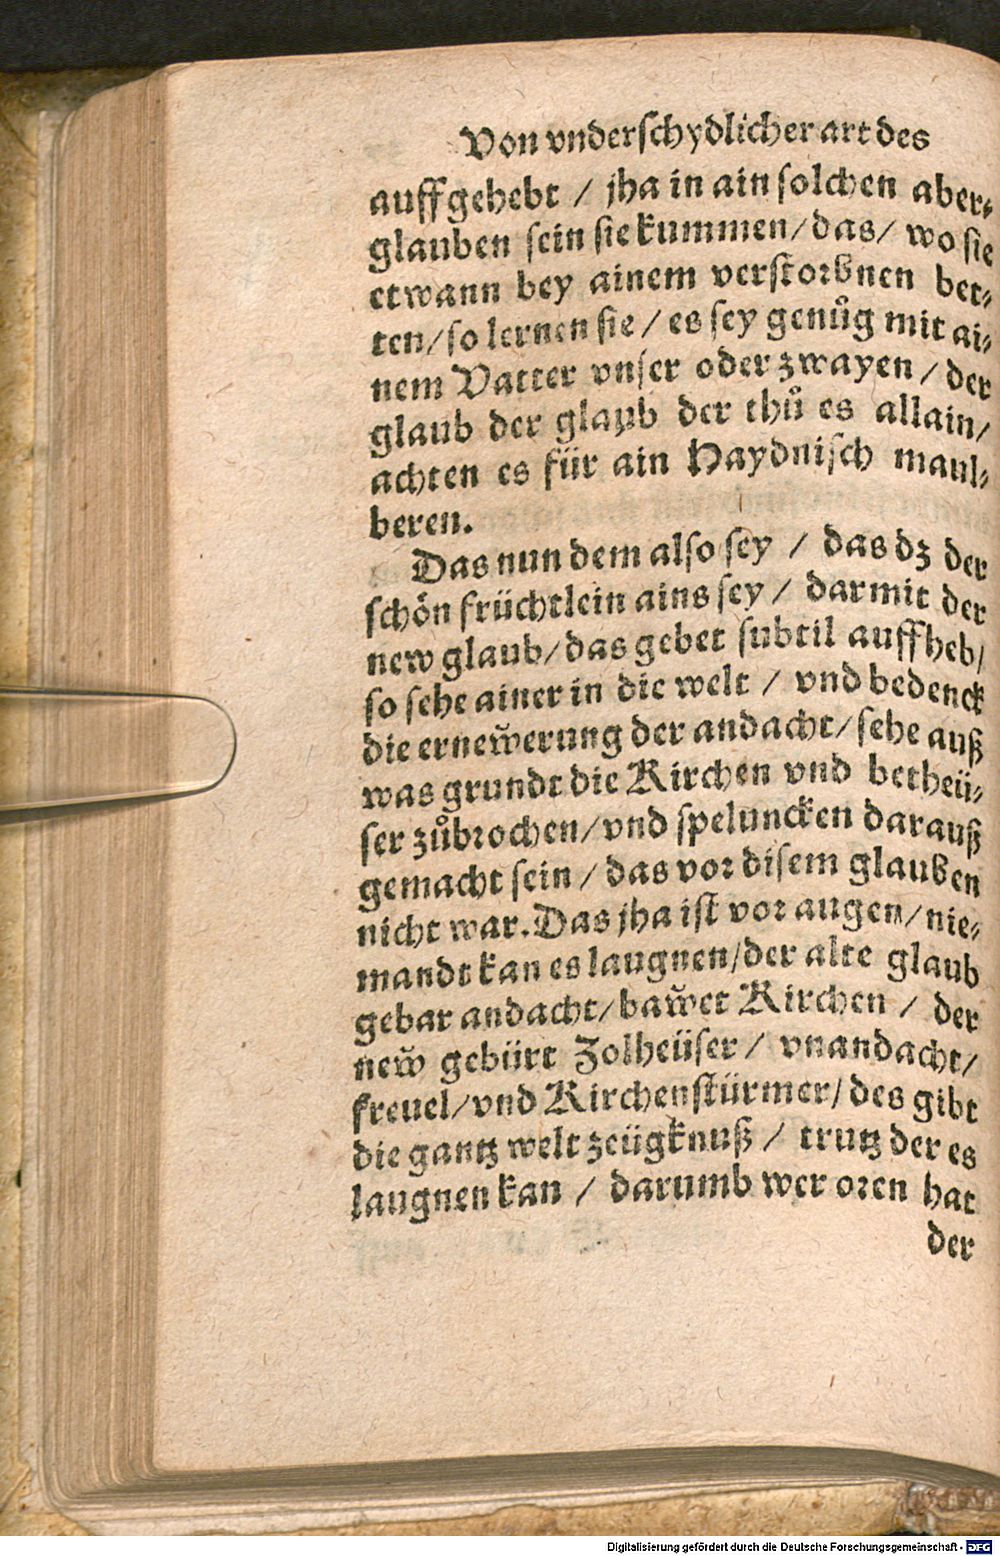 Von vnderſchydlicher art des
auffgehebt / jha in ain ſolchen aber⸗
glauben ſein ſie kummen / das / wo ſie
etwann bey ainem verſtorbnen bet⸗
ten / ſo lernen ſie / es ſey genuͦg mit ai⸗
nem Vatter vnſer oder zwayen / der
glaub der glaub der thuͦ es allain /
achten es für ain Haydniſch maul⸗
beren.
Das nun dem alſo ſey / das dz der
ſchoͤn früchtlein ains ſey / darmit der
new glaub / das gebet ſubtil auffheb /
ſo ſehe ainer in die welt / vnd bedenck
die ernew̆erung der andacht / ſehe auß
was grundt die Kirchen vnd betheü⸗
ſer zuͦbrochen / vnd ſpeluncken darauß
gemacht ſein / das vor diſem glauben
nicht war. Das jha iſt vor augen / nie⸗
mandt kan es laugnen / der alte glaub
gebar andacht / baw̆et Kirchen / der
new̆ gebürt Zolheüſer / vnandacht /
freuel / vnd Kirchenſtürmer / des gibt
die gantz welt zeügknuß / trutz der es
laugnen kan / darumb wer oren hat
der
Digitalisierung gefördert durch die Deutsche Forschungsgemeinschaft - DFG